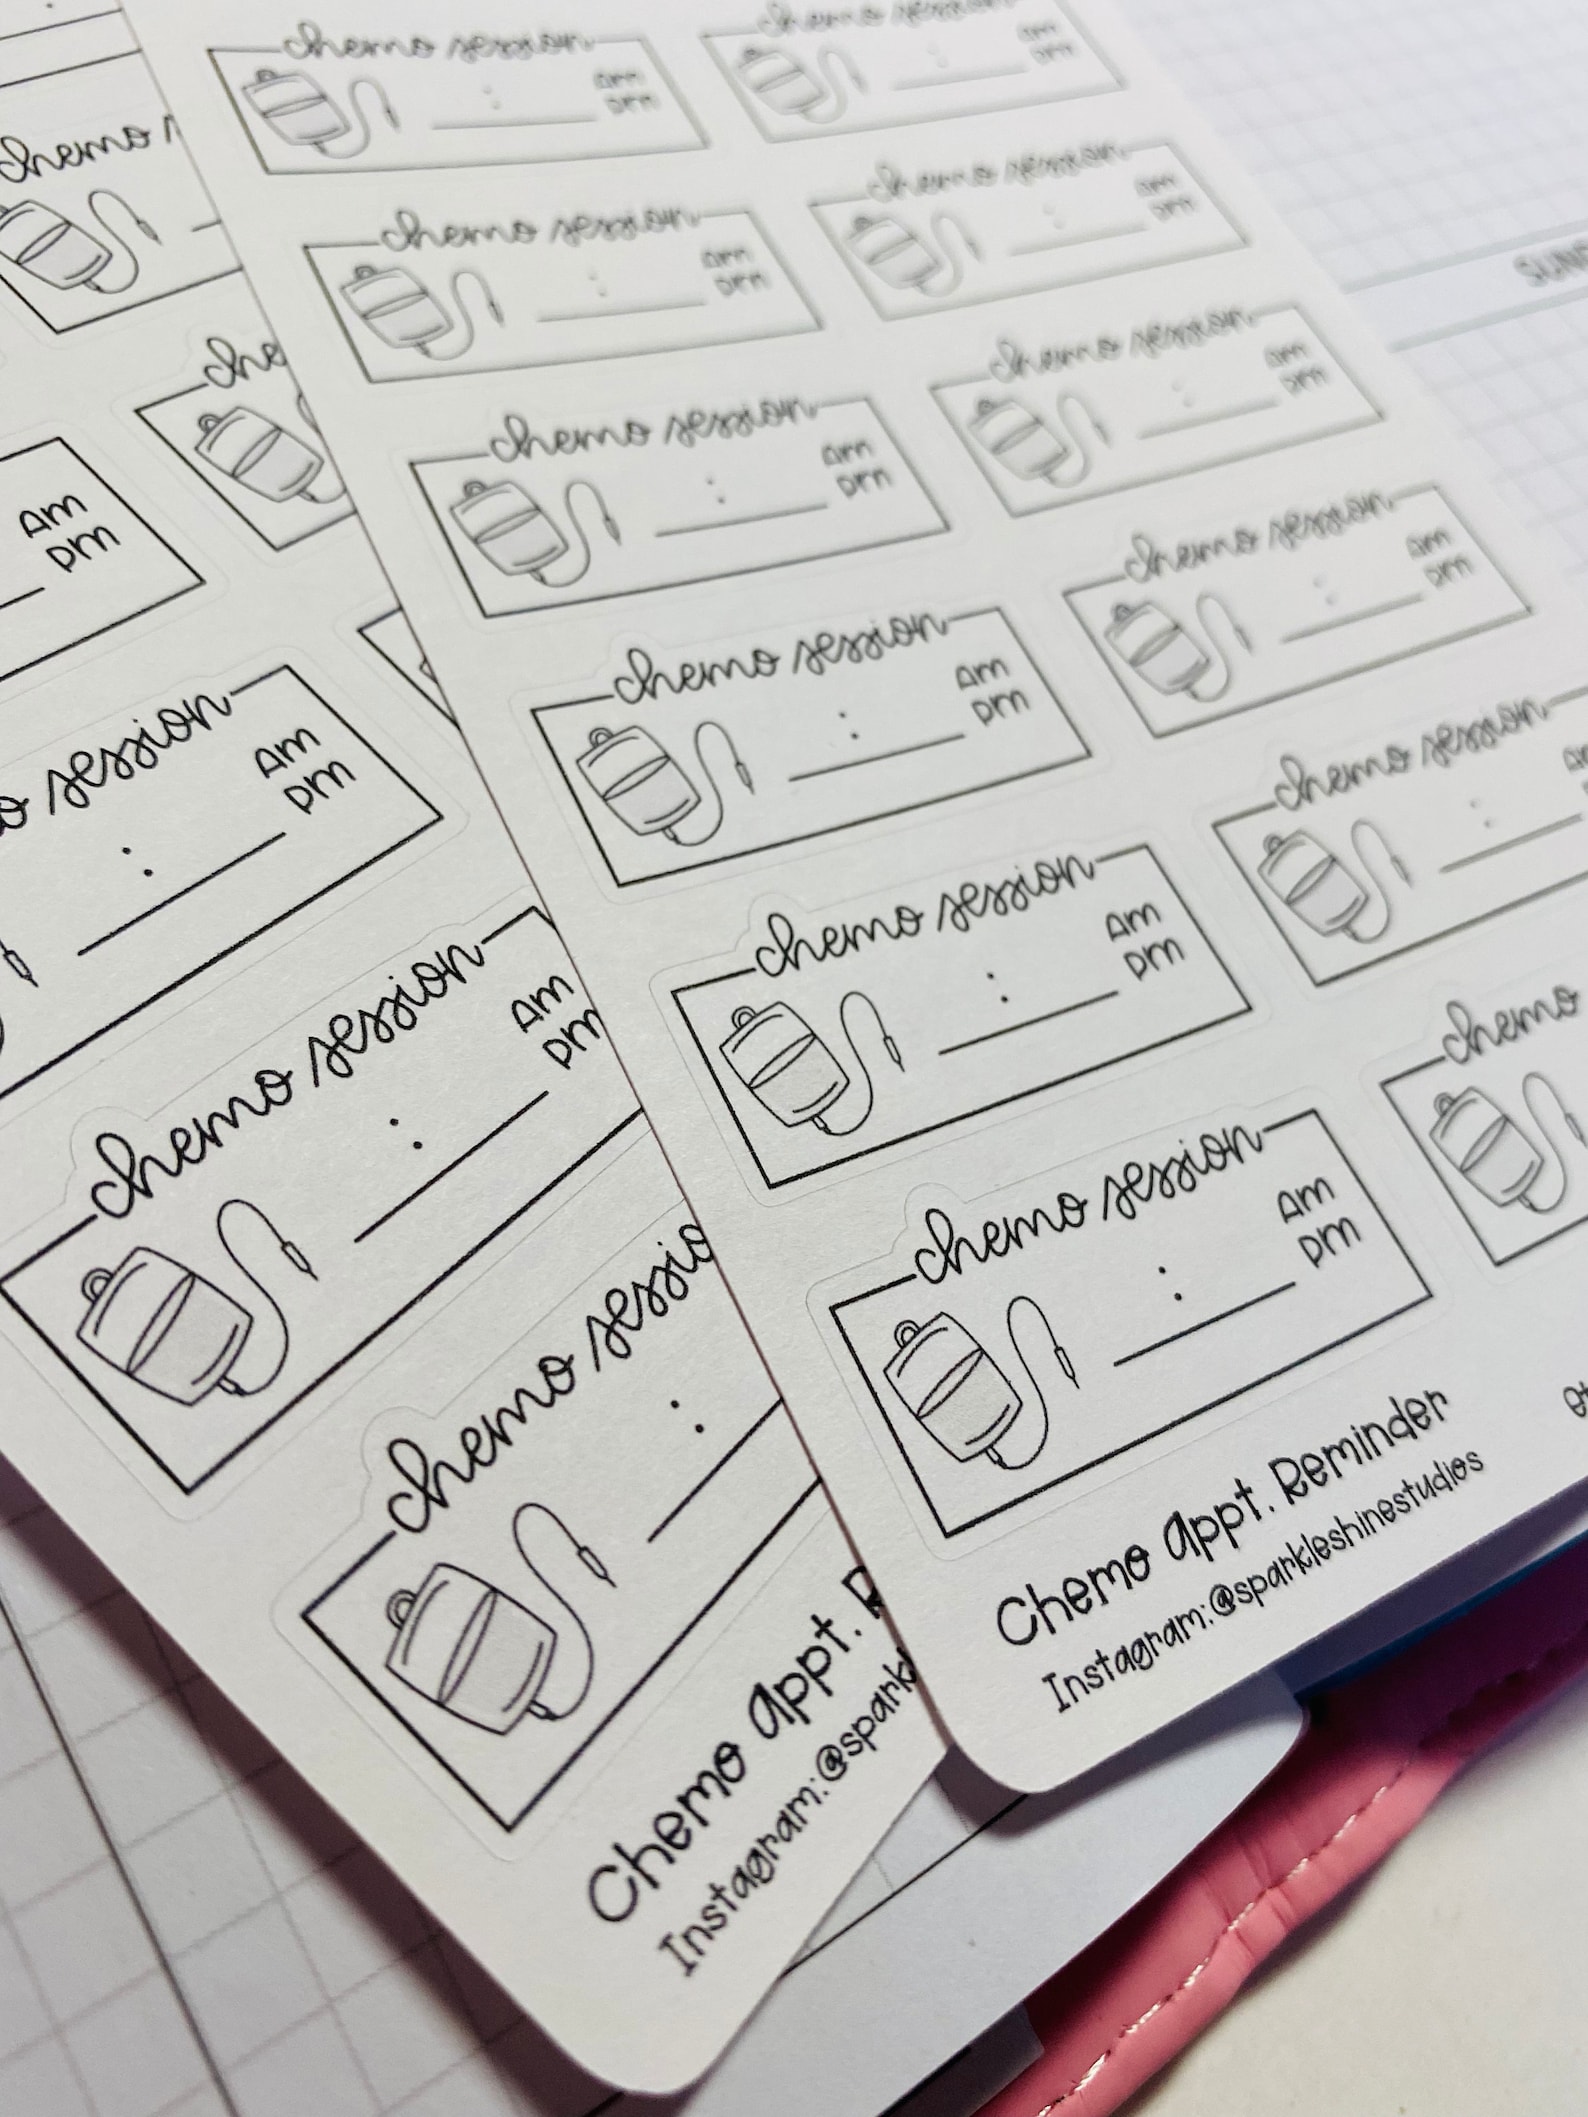 chemo session
:
Am
pm
chemo session
:
Am
pm
chemo session
:
Am
pm
chemo session
:
Am
pm
chemo session
:
Am
pm
chemo session
:
Am
pm
chemo session
:
Am
pm
chemo session
:
Am
pm
chemo session
:
Am
pm
chemo session
:
chemo session
:
Am
pm
chemo
Chemo Appt. Reminder
Instagram:@sparkleshinestudios
chemo
Am
pm
session
:
Am
pm
chemo session
:
Am
pm
chemo
:
Chemo Appt.
Instagram:@spark